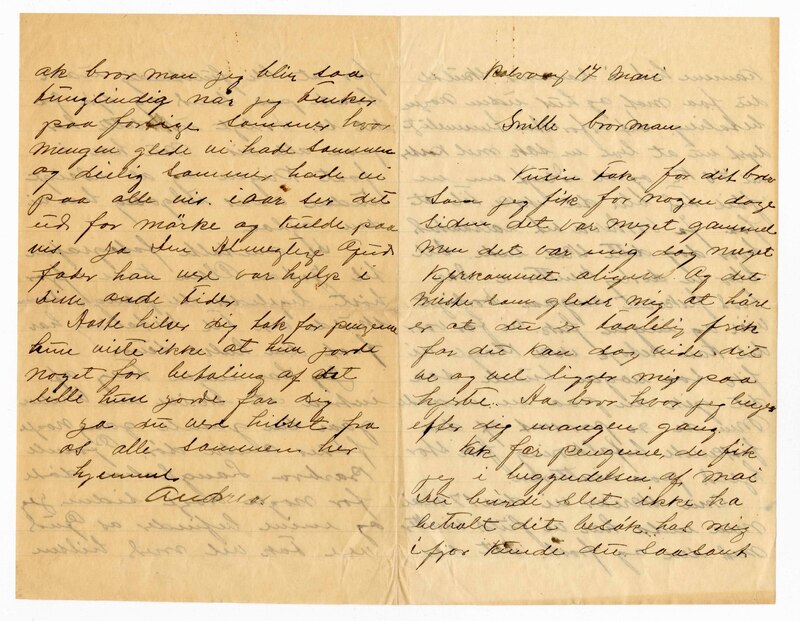 17 Mai
Snille bror man
Tusin tak for dit brev
som jeg fik for nogen dage
siden det var meget gammel
men det var mig dog meget
kjerkommet aligevel Og det
meste som gleder mig at høre
er at du er taalelig frisk
for du kan dog vide dit
ve og vel ligger mig paa
hjerte. Aa bror hvor jeg lenges
efter dig mangen gang
Tak for pengene, de fik
jeg i begyndelsen af mai
Du burde slet ikke ha
betalt dit besøk hos mig
ifjor kunde du saasant
ak bror man jeg blir saa
tunglindig nar jeg tenker
paa forrige sommer hvor
mengen glede vi hade sammen
og deilig sommer hade vi
paa alle vis. iaar ser det
ud for mörke og kulde paa
vis. ja Den Almegtige Gud
fader han vere vor hjelp i
disse onde tider
Aaste hilser dig tak for pengene
hun viste ikke at hun gorde
noget for betaling af det
lille hun gorde for dig
ja du vere hilset fra
os alle sammen her
hjemme
Andreas.